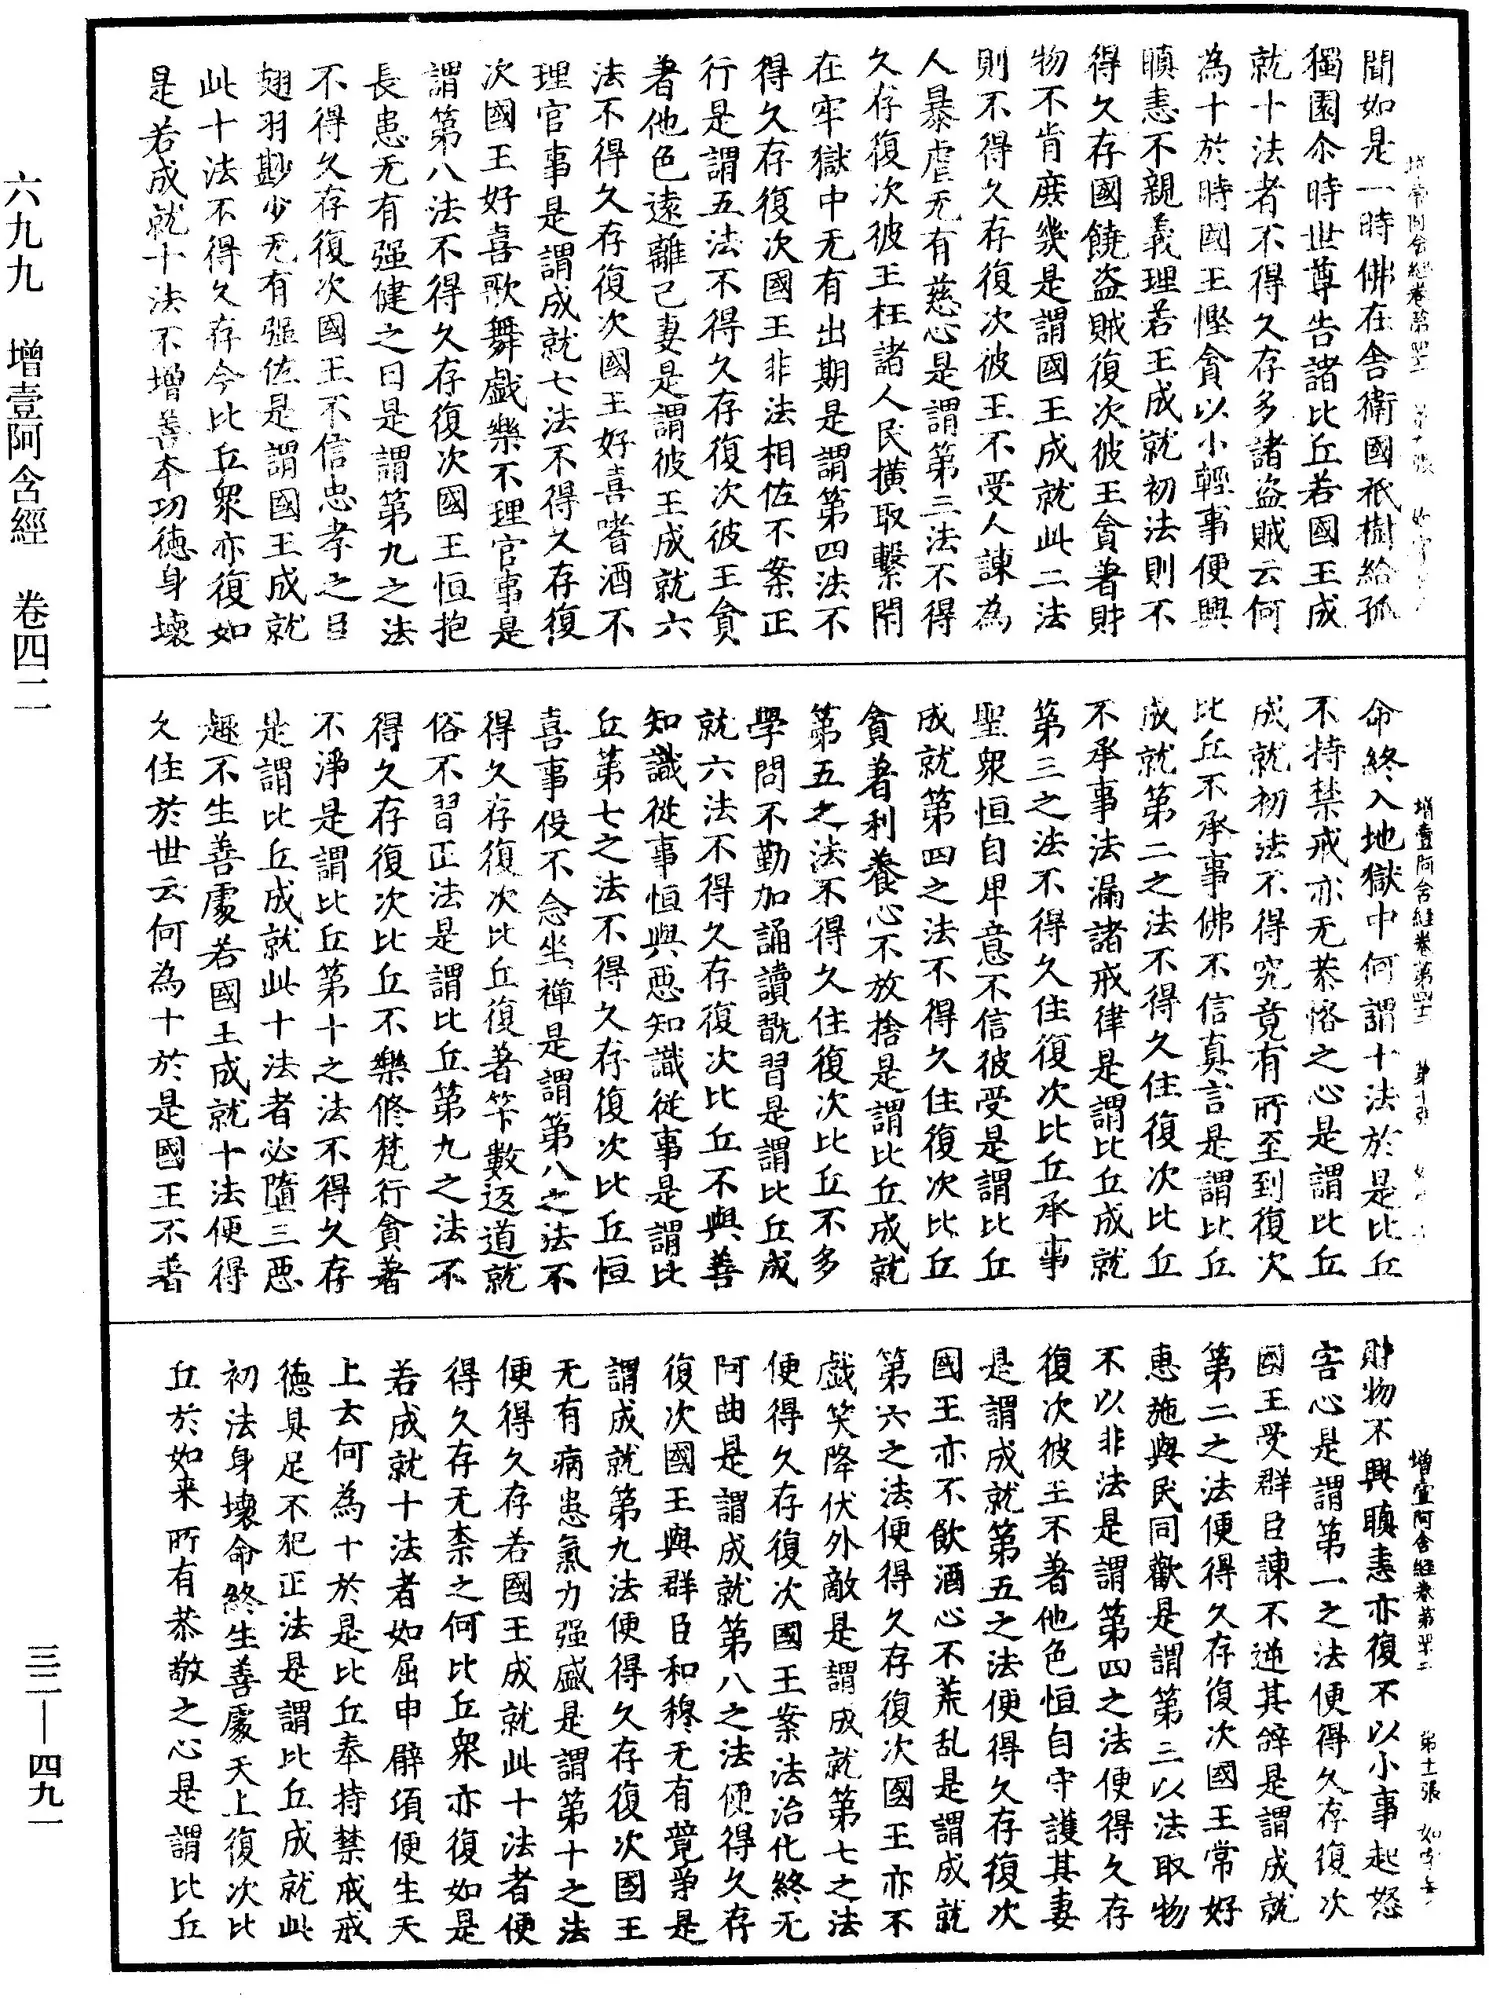 增壹阿含經卷第四十二 第九張 如字号
聞如是一時佛在舍衛國祇樹給孤
獨園尒時世尊告諸比丘若國王成
就十法者不得久存多諸盜賊云何
為十於時國王慳貪以小輕事便興
瞋恚不親義理若王成就初法則不
得久存國饒盜賊復次彼王貪著財
物不肯庶幾是謂國王成就此二法
則不得久存復次彼王不受人諫為
人暴虐无有慈心是謂第三法不得
久存復次彼王枉諸人民橫取繫閇
在牢獄中无有出期是謂第四法不
得久存復次國王非法相佐不案正
行是謂五法不得久存復次彼王貪
著他色遠離己妻是謂彼王成就六
法不得久存復次國王好喜嗜酒不
理官事是謂成就七法不得久存復
次國王好喜歌舞戲樂不理官事是
謂第八法不得久存復次國王恒抱
長患无有强健之日是謂第九之法
不得久存復次國王不信忠孝之臣
翅羽尠少无有强佐是謂國王成就
此十法不得久存今比丘衆亦復如
是若成就十法不增善本功德身壞
增壹阿含經卷第四十二 第十張 如字号
命終入地獄中何謂十法於是比丘
不持禁戒亦无恭恪之心是謂比丘
成就初法不得究竟有所至到復次
比丘不承事佛不信真言是謂比丘
成就第二之法不得久住復次比丘
不承事法漏諸戒律是謂比丘成就
第三之法不得久住復次比丘承事
聖衆恒自卑意不信彼受是謂比丘
成就第四之法不得久住復次比丘
貪著利養心不放捨是謂比丘成就
第五之法不得久住復次比丘不多
學問不勤加誦讀翫習是謂比丘成
就六法不得久存復次比丘不與善
知識從事恒與惡知識從事是謂比
丘第七之法不得久存復次比丘恒
喜事役不念坐禪是謂第八之法不
得久存復次比丘復著筭數返道就
俗不習正法是謂比丘第九之法不
得久存復次比丘不樂修梵行貪著
不淨是謂比丘第十之法不得久存
是謂比丘成就此十法者必墮三惡
趣不生善處若國王成就十法便得
久住於世云何為十於是國王不著
增壹阿含經卷第四十二 第十一張 如字号
財物不興瞋恚亦復不以小事起怒
害心是謂第一之法便得久存復次
國王受群臣諫不逆其辭是謂成就
第二之法便得久存復次國王常好
惠施與民同歡是謂第三以法取物
不以非法是謂第四之法便得久存
復次彼王不著他色恒自守護其妻
是謂成就第五之法便得久存復次
國王亦不飲酒心不荒乱是謂成就
第六之法便得久存復次國王亦不
戲笑降伏外敵是謂成就第七之法
便得久存復次國王案法治化終无
阿曲是謂成就第八之法便得久存
復次國王與群臣和穆无有競爭是
謂成就第九法便得久存復次國王
无有病患氣力强盛是謂第十之法
便得久存若國王成就此十法者便
得久存无柰之何比丘衆亦復如是
若成就十法者如屈申臂頃便生天
上云何為十於是比丘奉持禁戒戒
德具足不犯正法是謂比丘成就此
初法身壞命終生善處天上復次比
丘於如来所有恭敬之心是謂比丘
六九九 增壹阿含經 卷四二
三二—四九一